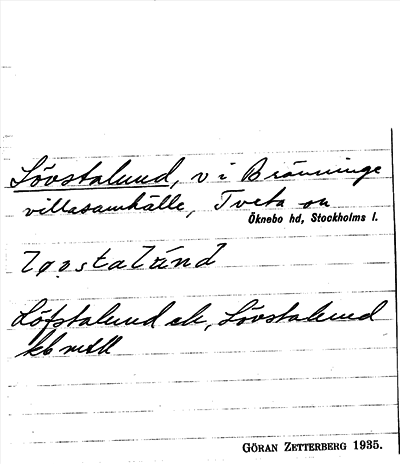 Lövstalund, v i Bränninge
villasamhälle, Tveta sn
Öknebo hd, Stockholms l.
Löfstalund ek, Lövstalund
kb
GÖRAN ZETTERBERG 1935.